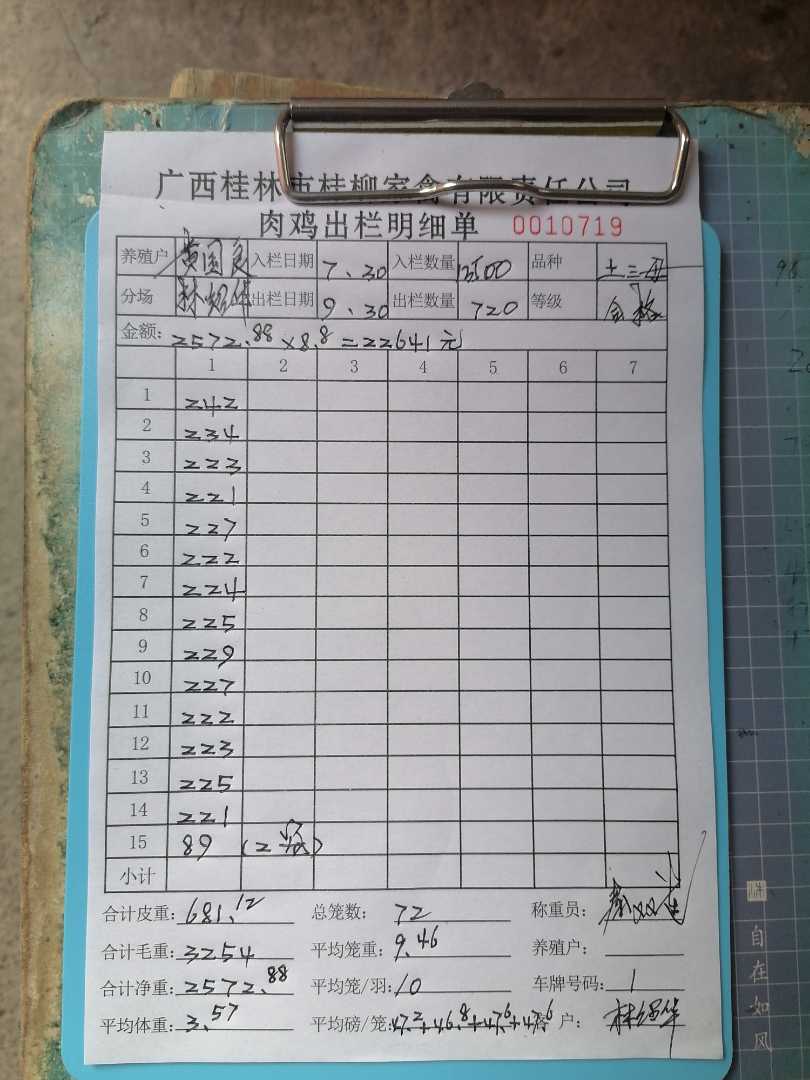 广西桂林市桂柳家禽有限责任公司
肉鸡出栏明细单 0010719
养殖户 黄国良 入栏日期 7.30 入栏数量 品种 土三母
分场 出栏日期 9.30 出栏数量 720 等级 合格
金额: 2572.88×8.8=22641元
1 2 3 4 5 6 7
1 242
2 234
3 223
4 221
5 227
6 222
7 224
8 225
9 229
10 227
11 222
12 223
13 225
14 221
15 89 (2笼)
小计
合计皮重: 681.12 总笼数: 72 称重员:
合计毛重: 3254 平均笼重: 9.46 养殖户:
合计净重: 2572.88 平均笼/羽: 10 车牌号码: 1
平均体重: 3.57 平均磅/笼: 47.2+46.8+47.6+47.6 客户:
自在如风